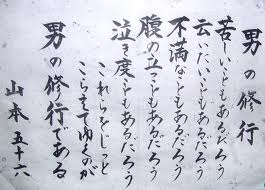 男の修行
苦しいこともあるだろう
云いたいこともあるだろう
不満なこともあるだろう
腹の立つこともあるだろう
泣き度いこともあるだろう
これらをじっと
こらえてゆくのが
男の修行である
山本五十六